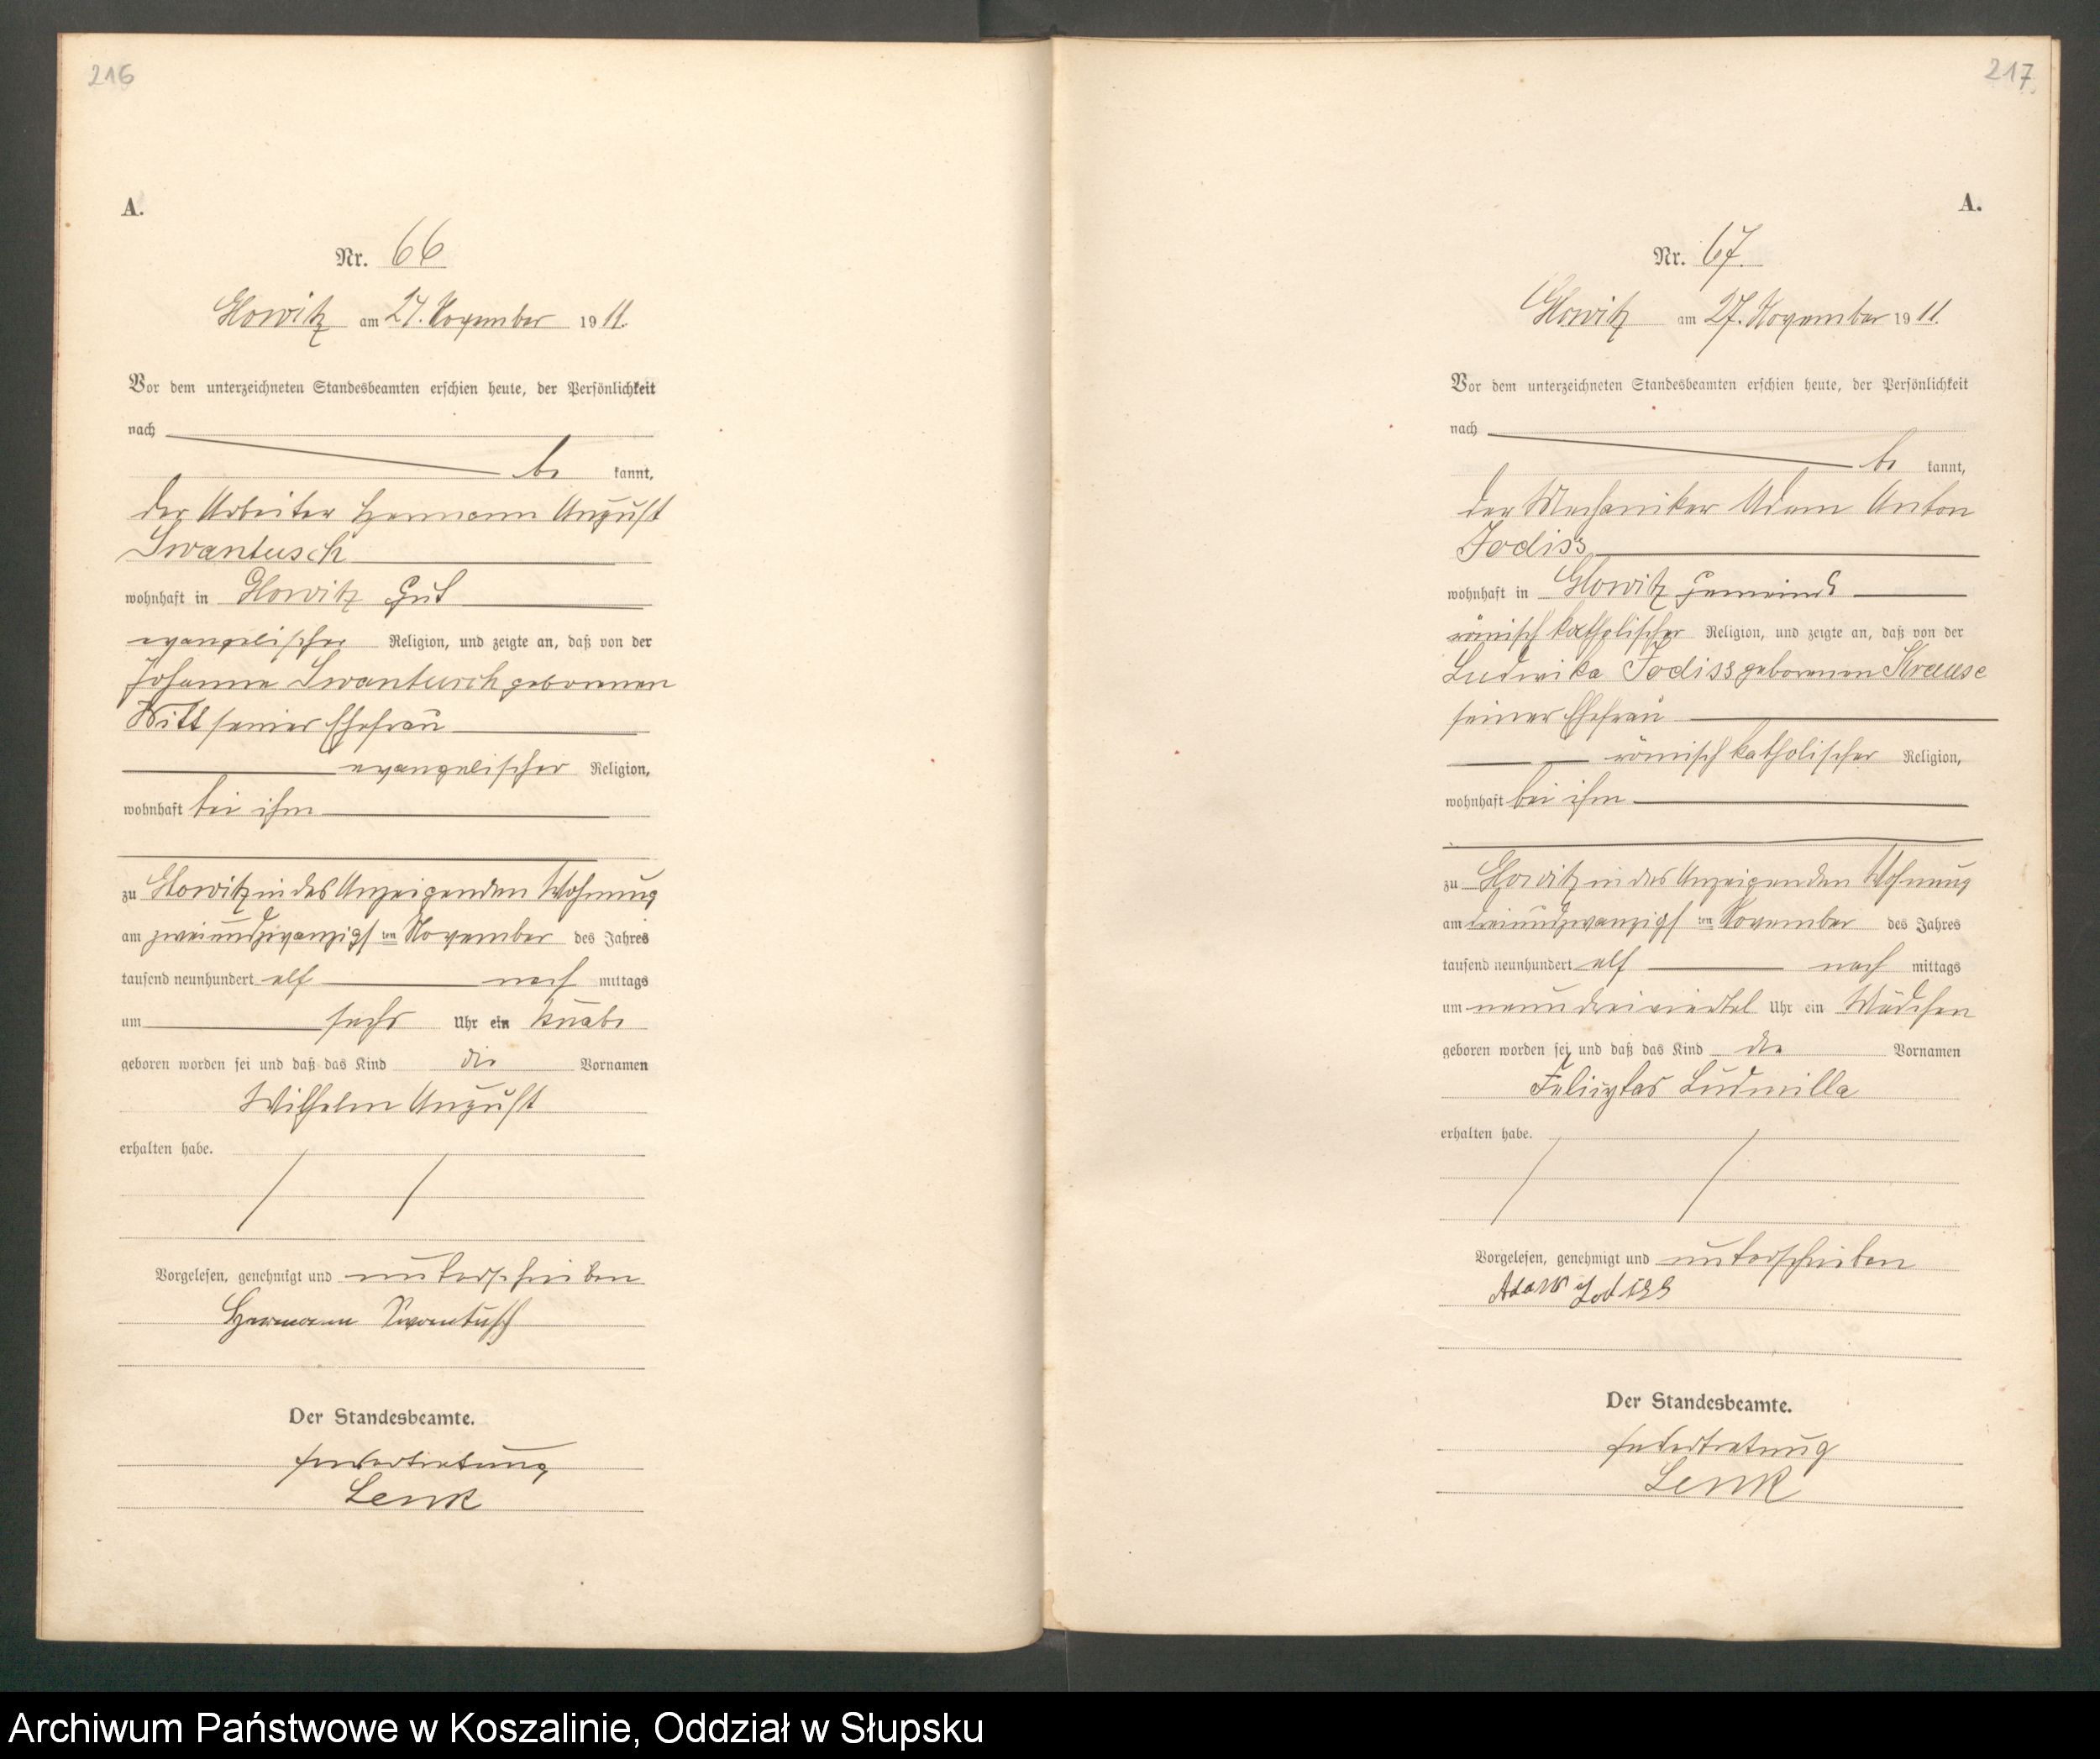 216
A.
Nr. 66
Glowitz am 27. November 1911.
Vor dem unterzeichneten Standesbeamten erschien heute, der Persönlichkeit
nach
be kannt,
der Arbeiter Hermann August
Swantusch
wohnhaft in Glowitz Gut
evangelischer Religion, und zeigte an, daß von der
Johanne Swantusch geborenen
Witt seiner Ehefrau
evangelischer Religion,
wohnhaft bei ihm
zu Glowitz in des Anzeigenden Wohnung
am zweiundzwanzigsten November des Jahres
tausend neunhundert elf nach mittags
um sechs Uhr ein Knabe
geboren worden sei und daß das Kind die Vornamen
Wilhelm August
erhalten habe.
Vorgelesen, genehmigt und unterschrieben
Hermann Swantusch
Der Standesbeamte.
In Vertretung
Lenk
217
A.
Nr. 67.
Glowitz am 27. November 1911.
Vor dem unterzeichneten Standesbeamten erschien heute, der Persönlichkeit
nach
be kannt,
der Mechaniker Adam Anton
Jodiss
wohnhaft in Glowitz Gemeinde
römisch katholischer Religion, und zeigte an, daß von der
Ludwika Jodiss geborenen Krause
seiner Ehefrau
römisch katholischer Religion,
wohnhaft bei ihm
zu Glowitz in des Anzeigenden Wohnung
am dreiundzwanzigsten November des Jahres
tausend neunhundert elf nach mittags
um neun dreiviertel Uhr ein Mädchen
geboren worden sei und daß das Kind die Vornamen
Felicytas Ludmilla
erhalten habe.
Vorgelesen, genehmigt und unterschrieben
Adam Jodiss
Der Standesbeamte.
In Vertretung
Lenk
Archiwum Państwowe w Koszalinie, Oddział w Słupsku